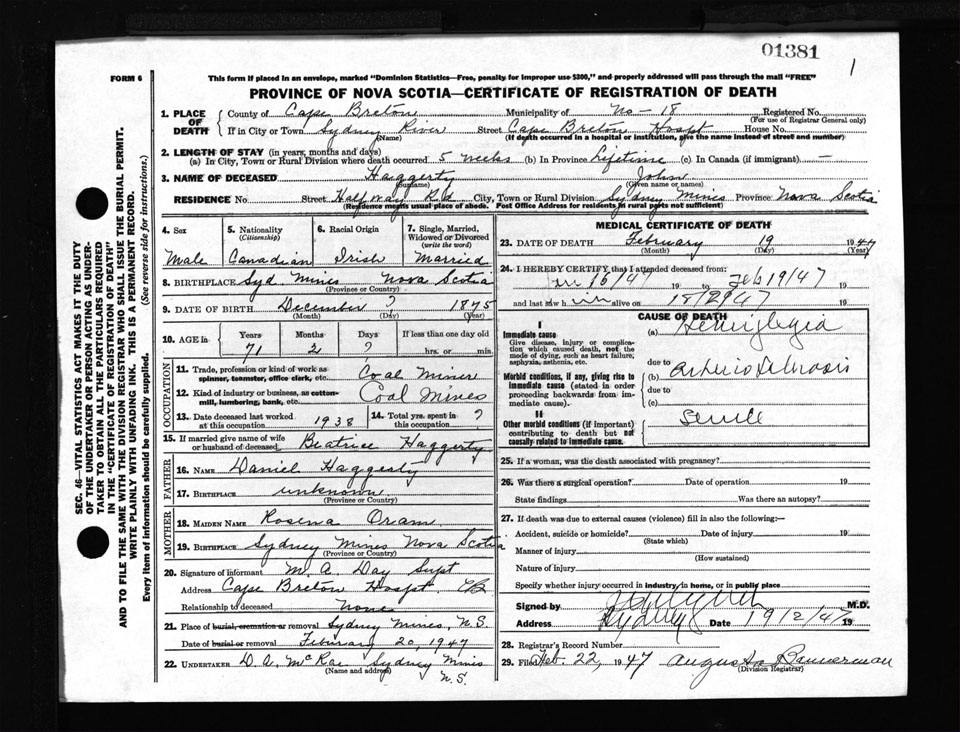 01381
1
FORM 6
This form if placed in an envelope, marked "Dominion Statistics—Free, penalty for improper use $300," and properly addressed will pass through the mail "FREE"
PROVINCE OF NOVA SCOTIA—CERTIFICATE OF REGISTRATION OF DEATH
SEC. 46—VITAL STATISTICS ACT MAKES IT THE DUTY
OF THE UNDERTAKER OR PERSON ACTING AS UNDER-
TAKER TO OBTAIN ALL THE PARTICULARS REQUIRED
IN THE "CERTIFICATE OF REGISTRATION OF DEATH"
AND TO FILE THE SAME WITH THE DIVISION REGISTRAR WHO SHALL ISSUE THE BURIAL PERMIT.
WRITE PLAINLY WITH UNFADING INK. THIS IS A PERMANENT RECORD.
Every item of information should be carefully supplied. (See reverse side for instructions.)
1. PLACE OF DEATH County of Cape Breton Municipality of No-18 Registered No.
(For use of Registrar General only)
If in City or Town Sydney River Street Cape Breton Hospt House No.
(Name) (If death occurred in a hospital or institution, give the name instead of street and number)
2. LENGTH OF STAY (in years, months and days)
(a) In City, Town or Rural Division where death occurred 5 weeks (b) In Province Lifetime (c) In Canada (if immigrant) —
3. NAME OF DECEASED Haggerty John
(Surname) (Given name or names)
RESIDENCE No. Street Halfway Rd City, Town or Rural Division Sydney Mines Province Nova Scotia
(Residence means usual place of abode. Post Office Address for residents in rural parts not sufficient)
4. Sex 5. Nationality (Citizenship) 6. Racial Origin 7. Single, Married, Widowed or Divorced (write the word)
Male Canadian Irish Married
8. BIRTHPLACE Syd Mines Nova Scotia
(Province or Country)
9. DATE OF BIRTH December ? 1875
(Month) (Day) (Year)
10. AGE in Years Months Days If less than one day old
71 2 ? hrs. or min.
OCCUPATION
11. Trade, profession or kind of work as spinner, teamster, office clerk, etc. Coal Miner
12. Kind of industry or business, as cotton-mill, lumbering, bank, etc. Coal Mines
13. Date deceased last worked at this occupation 1938 14. Total yrs. spent in this occupation ?
15. If married give name of wife or husband of deceased Beatrice Haggerty
FATHER
16. NAME Daniel Haggerty
17. BIRTHPLACE unknown
(Province or Country)
MOTHER
18. MAIDEN NAME Rosena Oram
19. BIRTHPLACE Sydney Mines Nova Scotia
(Province or Country)
20. Signature of informant M. A. Day Supt
Address Cape Breton Hospt. CB
Relationship to deceased None
21. Place of burial, cremation or removal Sydney Mines, N.S.
Date of burial or removal February 20, 1947
22. UNDERTAKER D. A. McRae Sydney Mines
(Name and address) N.S.
MEDICAL CERTIFICATE OF DEATH
23. DATE OF DEATH February 19 1947
(Month) (Day) (Year)
24. I HEREBY CERTIFY that I attended deceased from:
16/47 19 to Feb 19/47 19
and last saw h im alive on 18/2/47 19
CAUSE OF DEATH
I
Immediate cause (a) Hemiplegia
Give disease, injury or complication which caused death, not the mode of dying, such as heart failure, asphyxia, asthenia, etc.
due to
Morbid conditions, if any, giving rise to immediate cause (stated in order proceeding backwards from immediate cause). (b)
due to
(c)
II
Other morbid conditions (if important) contributing to death but not causally related to immediate cause. Senile
25. If a woman, was the death associated with pregnancy?
26. Was there a surgical operation? Date of operation 19
State findings Was there an autopsy?
27. If death was due to external causes (violence) fill in also the following:—
Accident, suicide or homicide? Date of injury 19
(State which)
Manner of injury
(How sustained)
Nature of injury
Specify whether injury occurred in industry, in home, or in public place
Signed by M.D.
Address Sydney Date 19/2/47 19
28. Registrar's Record Number
29. Filed Feb. 22, 1947 Augusta Bannerman
(Division Registrar)